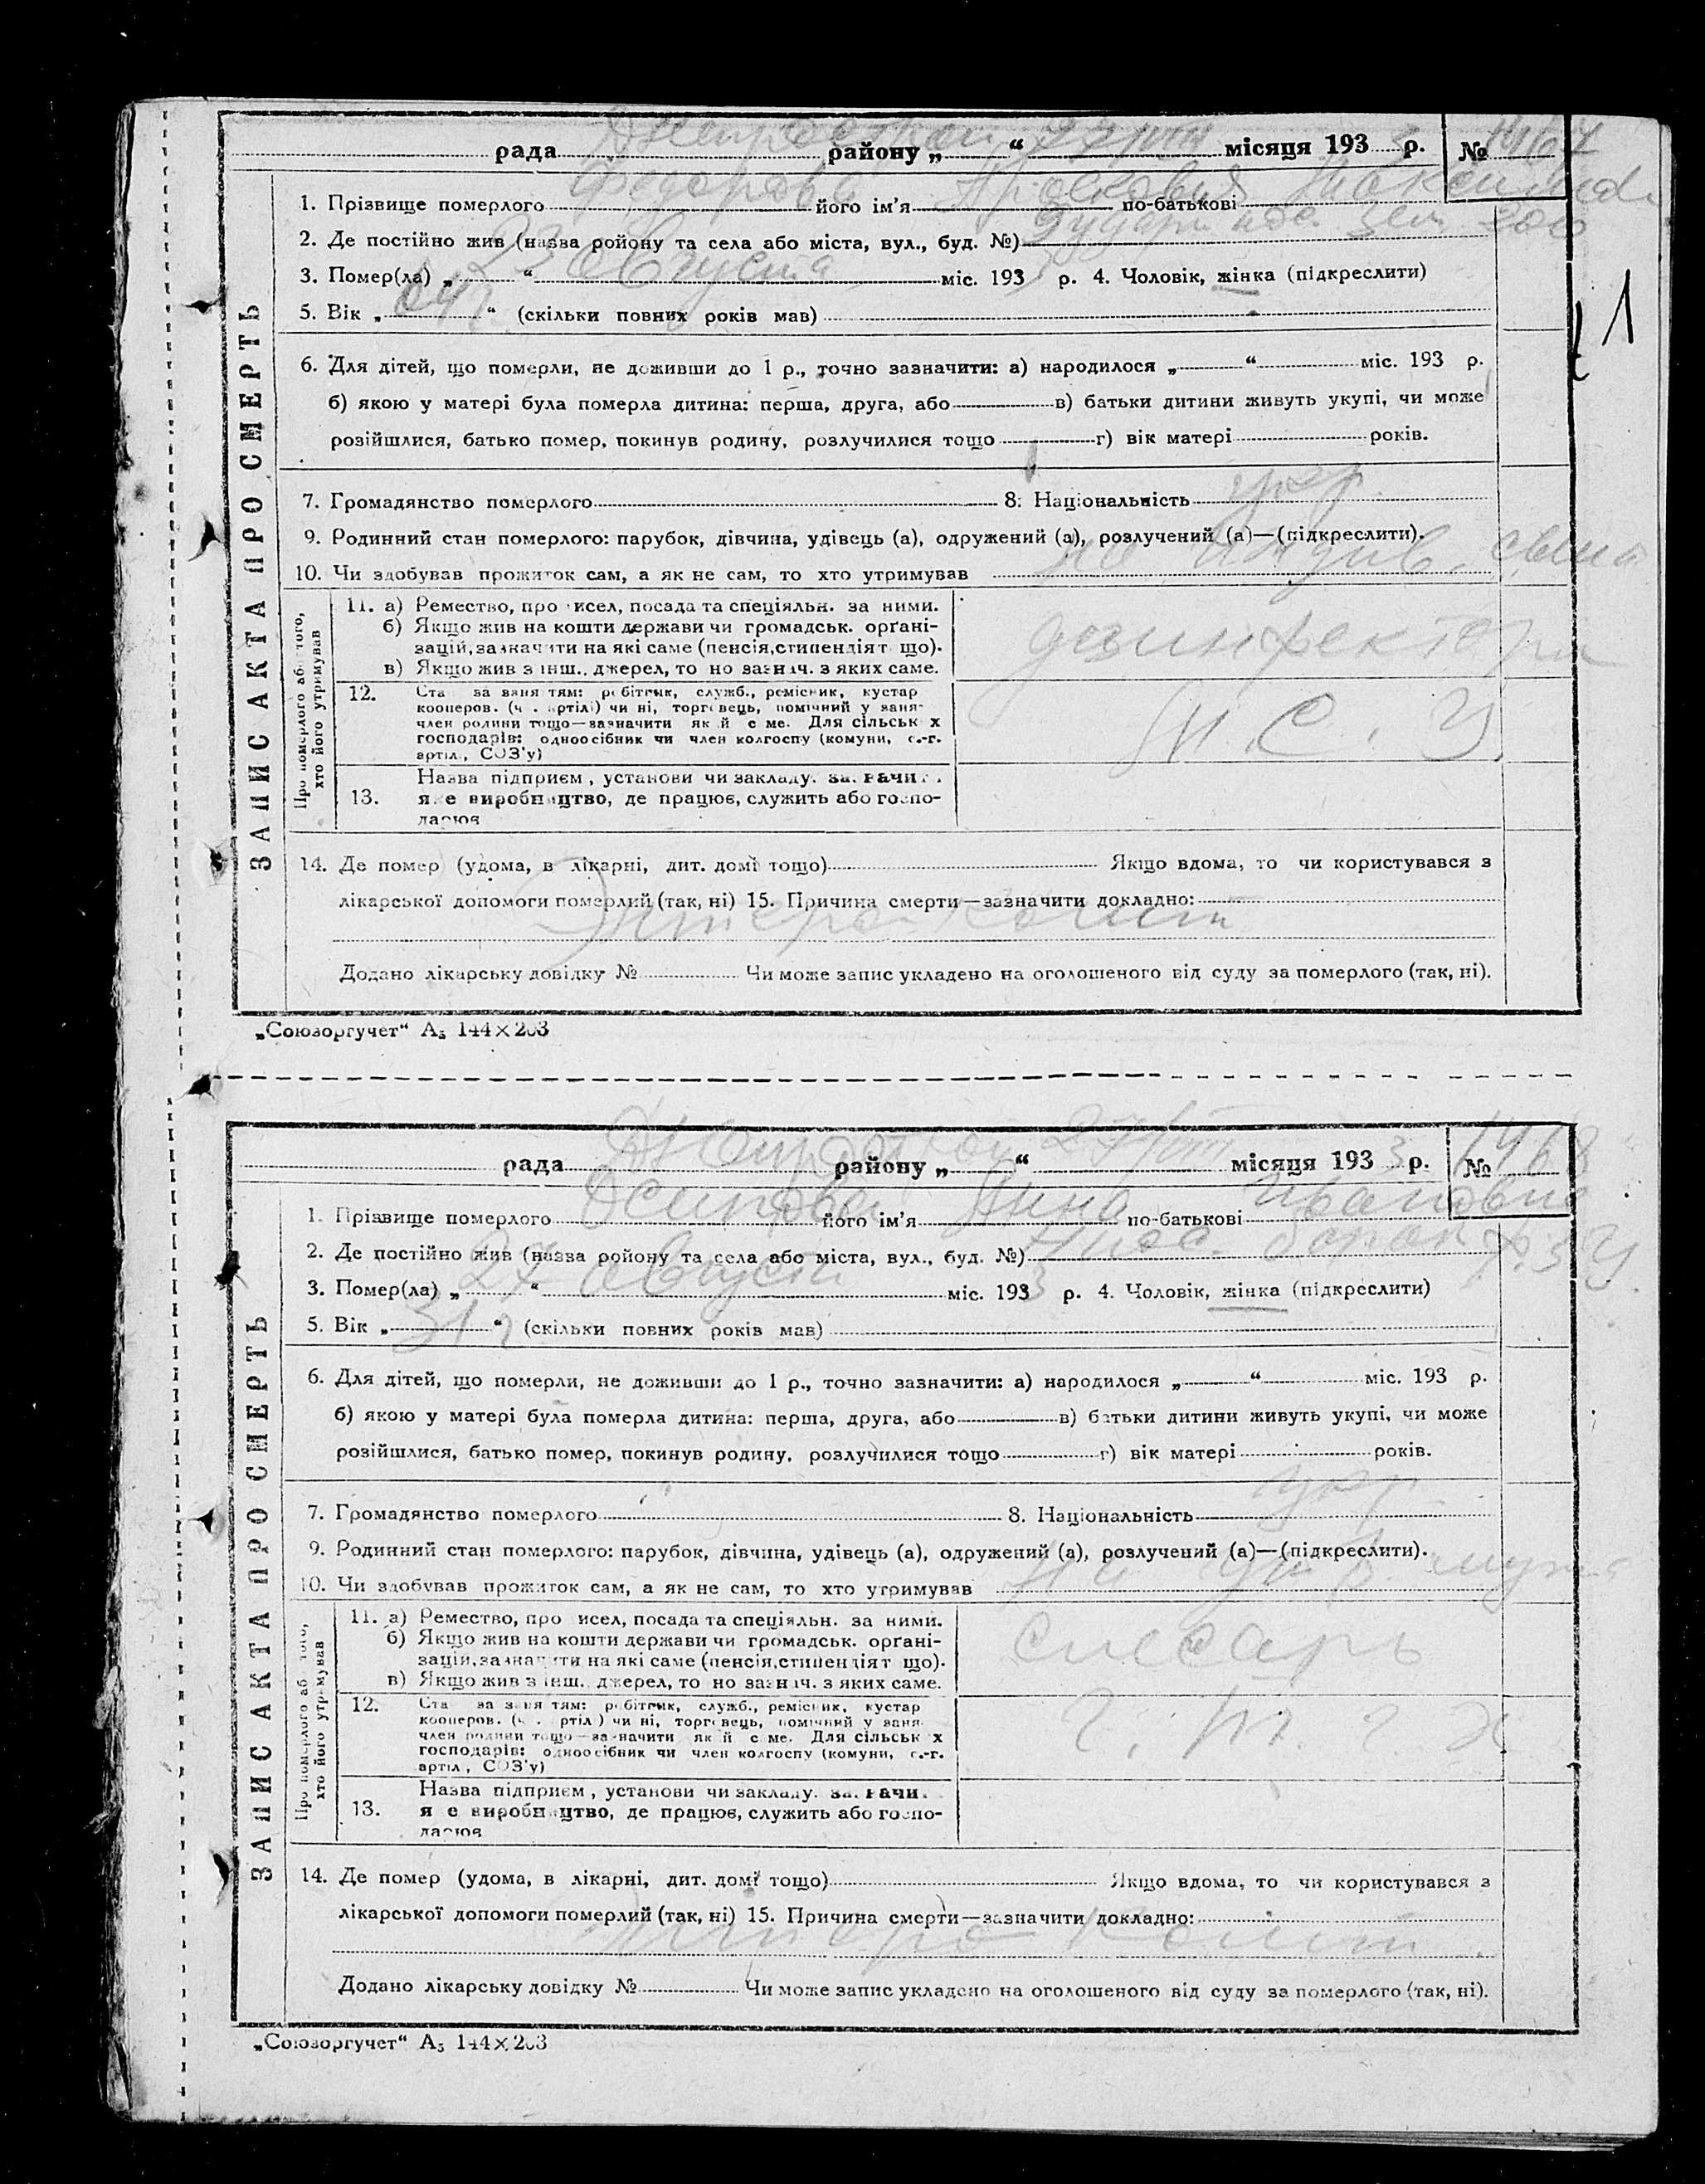 рада Днепрострой району „ 27 “ VIII місяця 193 3 р. № 1467
1. Прізвище померлого Федорова його ім’я Прасковия по-батькові
2. Де постійно жив (назва ройону та села або міста, вул., буд. №)
3. Помер(ла) „ 23 “ Августа міс. 193 р. 4. Чоловік, жінка (підкреслити)
5. Вік „ “ (скільки повних років мав)
ЗАПИС АКТА ПРО СМЕРТЬ
6. Для дітей, що померли, не доживши до 1 р., точно зазначити: а) народилося „ “ міс. 193 р.
б) якою у матері була померла дитина: перша, друга, або в) батьки дитини живуть укупі, чи може
розійшлися, батько помер, покинув родину, розлучилися тощо г) вік матері років.
7. Громадянство померлого 8. Національність укр.
9. Родинний стан померлого: парубок, дівчина, удівець (а), одружений (а), розлучений (а)—(підкреслити).
10. Чи здобував прожиток сам, а як не сам, то хто утримував на иждив. сына
Про померлого або того, хто його утримував
11. а) Ремество, про исел, посада та спеціяльн. за ними.
б) Якщо жив на кошти держави чи громадськ. орґані-
зацій, зазначити на які саме (пенсія, стипендія т що).
в) Якщо жив з інш. джерел, то но зазнач. з яких саме.
дзинфектера
12. Ста за заня тям: робітник, служб., ремісник, кустар
кооперов. (ч . артілі) чи ні, торговець, помічний у заня-
член родини тощо—зазначити як й с ме. Для сільськ х
господарів: одноосібник чи член колгоспу (комуни, с.-г.
артіл., СОЗ'у)
М. С. У.
13. Назва підприєм , установи чи закладу. за. начи .
я е виробництво, де працює, служить або госпо-
дарює
14. Де помер (удома, в лікарні, дит. домі тощо) Якщо вдома, то чи користувався з
лікарської допомоги померлий (так, ні) 15. Причина смерти—зазначити докладно:
Энтеро-колит
Додано лікарську довідку № Чи може запис укладено на оголошеного від суду за померлого (так, ні).
„Союзоргучет“ А₅ 144×203
1
рада Днепрострой району „ 27 “ VIII місяця 193 3 р. № 1468
1. Прізвище померлого Осипова його ім’я Анна по-батькові Ивановна
2. Де постійно жив (назва ройону та села або міста, вул., буд. №) барак ФЗУ.
3. Помер(ла) „ 27 “ Августа міс. 193 3 р. 4. Чоловік, жінка (підкреслити)
5. Вік „ 31 г “ (скільки повних років мав)
ЗАПИС АКТА ПРО СМЕРТЬ
6. Для дітей, що померли, не доживши до 1 р., точно зазначити: а) народилося „ “ міс. 193 р.
б) якою у матері була померла дитина: перша, друга, або в) батьки дитини живуть укупі, чи може
розійшлися, батько помер, покинув родину, розлучилися тощо г) вік матері років.
7. Громадянство померлого 8. Національність укр
9. Родинний стан померлого: парубок, дівчина, удівець (а), одружений (а), розлучений (а)—(підкреслити).
10. Чи здобував прожиток сам, а як не сам, то хто утримував на мужа
Про померлого або того, хто його утримував
11. а) Ремество, про исел, посада та спеціяльн. за ними.
б) Якщо жив на кошти держави чи громадськ. орґані-
зацій, зазначити на які саме (пенсія, стипендія т що).
в) Якщо жив з інш. джерел, то но зазнач. з яких саме.
слесарь
12. Ста за заня тям: робітник, служб., ремісник, кустар
кооперов. (ч . артіл ) чи ні, торговець, помічний у заня-
член родини тощо—зазначити як й с ме. Для сільськ х
господарів: одноосібник чи член колгоспу (комуни, с.-г.
артіл., СОЗ'у)
13. Назва підприєм , установи чи закладу. за. начи .
я е виробництво, де працює, служить або госпо-
дарює
14. Де помер (удома, в лікарні, дит. домі тощо) Якщо вдома, то чи користувався з
лікарської допомоги померлий (так, ні) 15. Причина смерти—зазначити докладно:
Энтеро Колит
Додано лікарську довідку № Чи може запис укладено на оголошеного від суду за померлого (так, ні).
„Союзоргучет“ А₅ 144×203